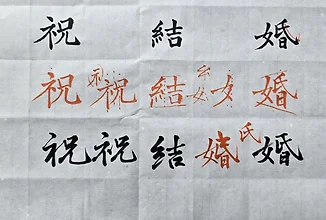 祝 結 婚
祝 祝 結 女 婚
祝 祝 結 婚 氏 婚